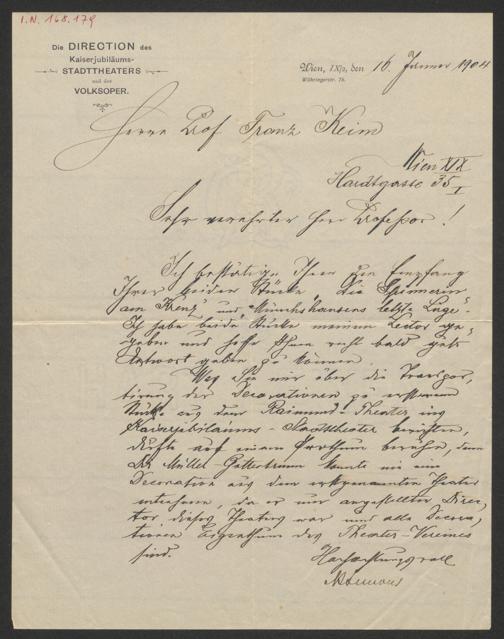 I.N. 168.179
Die DIRECTION des
Kaiserjubiläums-
STADTTHEATERS
und der
VOLKSOPER.
Wien, IX/2, den 16 Jänner 1904
Währingerstr. 78.
Herrn Prof. Franz Keim
Wien XIX
Hardtgasse 35
I
Sehr verehrter Herr Professor!
Ich bestätige Ihnen den Empfang
Ihrer beiden Stücke „Die Spinnerin
am Kreuz" und „Münchhausens letzte Lüge".
Ich habe beide Stücke meinem Lector ge-
geben und hoffe Ihnen recht bald gute
Antwort geben zu können.
Was Sie mir über die Transpor-
tirung der Decorationen zu ersterem
Stücke aus dem Raimund-Theater ins
Kaiserjubiläums-Stadttheater berichten,
dürfte auf einem Irrthum beruhen, denn
Dir. Müller-Guttenbrunn konnte nie eine
Decoration aus dem erstgenannten Theater
entnehmen, da er nur angestellter Direc-
tor dieses Theaters war und alle Decora-
tionen Eigenthum des Theater-Vereines
sind.
Hochachtungsvoll